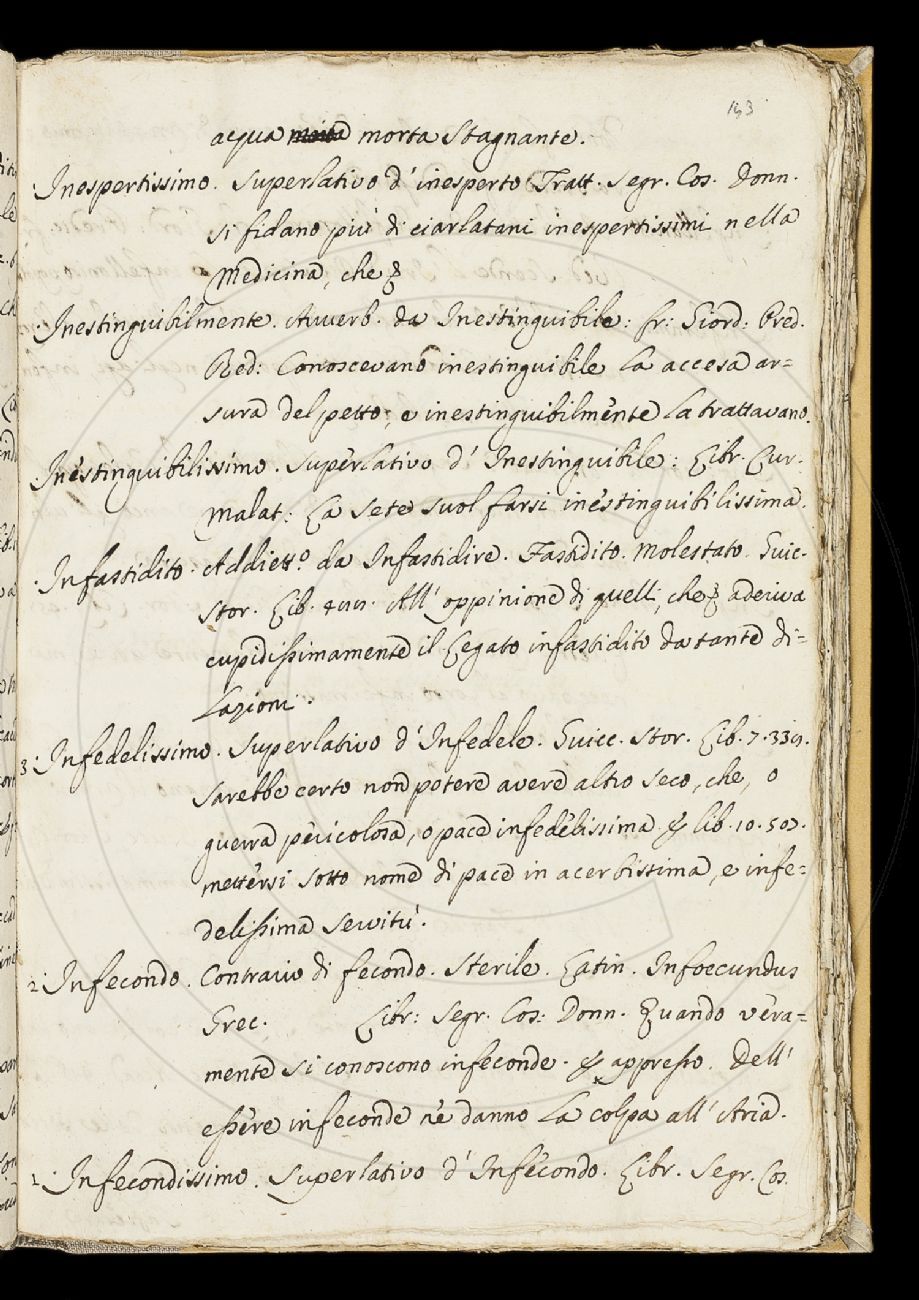 143
acqua morta stagnante.
Inespertissimo. Superlativo d'inesperto Tratt. Segr. Cos. Donn.
si fidano più di ciarlatani inespertissimi nella
Medicina, che &
Inestinguibilmente. Avverb. da Inestinguibile: fr: Giord: Pred.
Red: Conoscevano inestinguibile la accesa ar=
sura del petto, e inestinguibilmente la trattavano.
Inestinguibilissimo. Superlativo d'Inestinguibile: Libr. Cur.
Malat: La sete suol farsi inestinguibilissima.
Infastidito. Addietto. da Infastidire. Fastidito. Molestato. Guic.
Stor. Lib. All'oppinione di quelli, che & aderiva
cupidissimamente il Legato infastidito da tante di=
lazioni.
3. Infedelissimo. Superlativo d'Infedele. Guicc. Stor. Lib. 7. 339.
Sarebbe certo non potere avere altro seco, che, o
guerra pericolosa, o pace infedelissima. & lib. 10. 507.
mettersi sotto nome di pace in acerbissima, e infe=
delissima servitù.
2. Infecondo. Contrario di fecondo. Sterile. Latin. Infoecundus
Grec. Libr: Segr. Cos: Donn. Quando vera=
mente si conoscono infeconde. & appresso. Dell'
essere infeconde ne danno la colpa all'Aria.
2. Infecondissimo. Superlativo d'Infecondo. Libr. Segr. Cos.